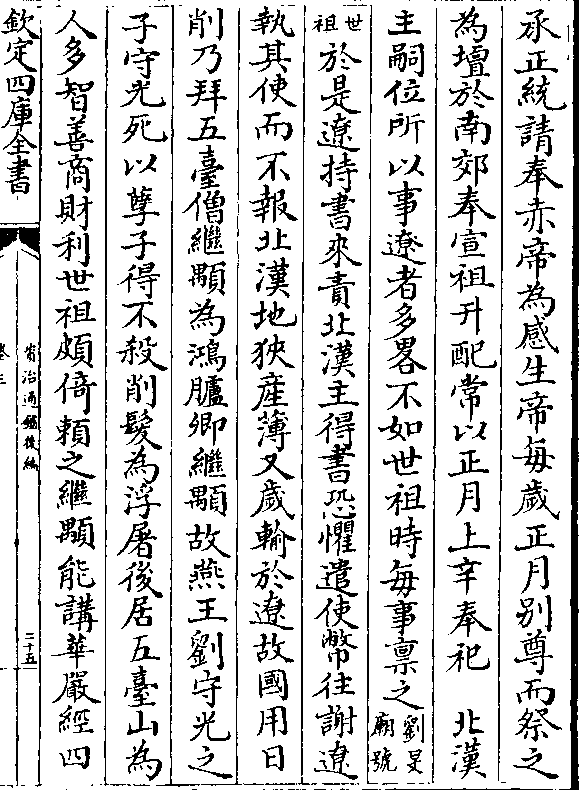 承正統請奉赤帝為感生帝每歲正月别尊而祭之
為壇於南郊奉宣祖升配常以正月上辛奉祀　北漢
主嗣位所以事遼者多畧不如世祖時每事禀之劉旻廟號
世祖於是遼持書來責北漢主得書恐懼遣使幣往謝遼
執其使而不報北漢地狹産薄又歲輸於遼故國用日
削乃拜五臺僧繼顒為鴻臚卿繼顒故燕王劉守光之
子守光死以孽子得不殺削髮為浮屠後居五臺山為
人多智善商財利世祖頗倚賴之繼顒能講華嚴經四
欽定四庫全書
資治通鑑後編
卷三
二十五